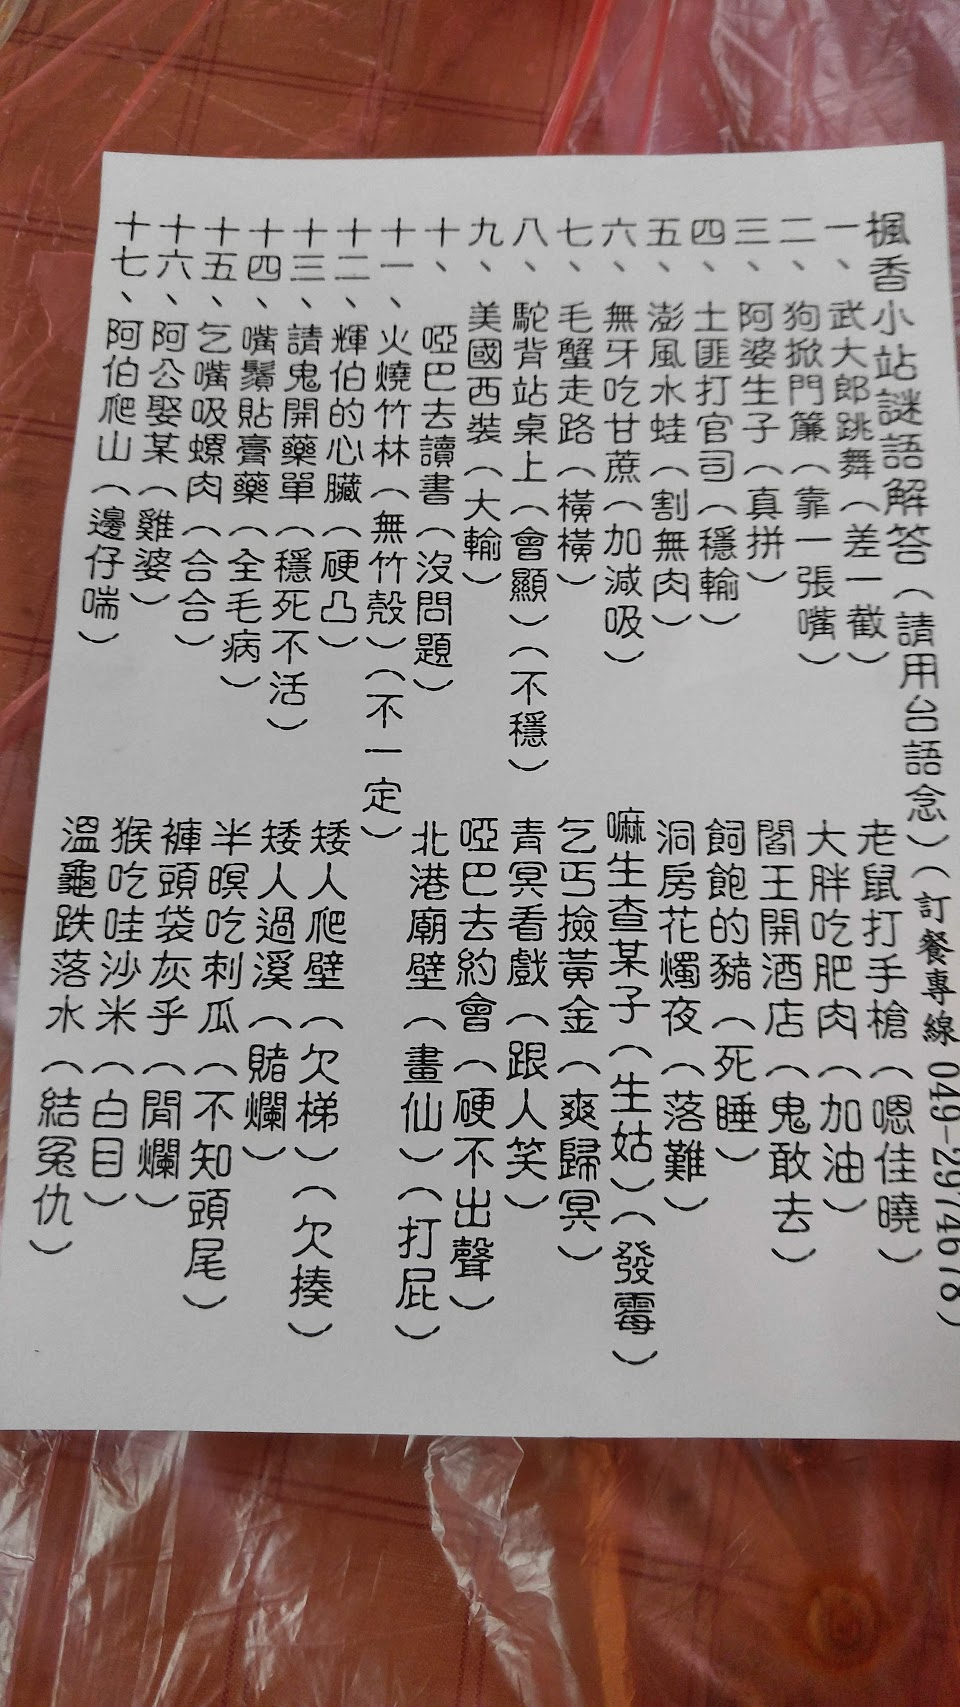 楓香小站謎語解答(請用台語念)(訂餐專線049-2974678)
一、武大郎跳舞(差一截)
老鼠打手槍(嗯佳曉)
二、狗掀門簾(靠一張嘴)
大胖吃肥肉(加油)
三、阿婆生子(真拼)
閻王開酒店(鬼敢去)
四、土匪打官司(穩輸)
飼飽的豬(死睡)
五、澎風水蛙(割無肉)
洞房花燭夜(落難)
六、無牙吃甘蔗(加減吸)
嘛生查某子(生姑)(發霉)
七、毛蟹走路(橫橫)
乞丐撿黃金(爽歸冥)
八、駝背站桌上(會顯)(不穩)
青冥看戲(跟人笑)
九、美國西裝(大輸)
啞巴去約會(硬不出聲)
十、啞巴去讀書(沒問題)
北港廟壁(畫仙)(打屁)
十一、火燒竹林(無竹殼)(不一定)
十二、輝伯的心臟(硬凸)
矮人爬壁(欠梯)(欠揍)
十三、請鬼開藥單(穩死不活)
矮人過溪(賭爛)
十四、嘴鬚貼膏藥(全毛病)
半暝吃刺瓜(不知頭尾)
十五、乞嘴吸螺肉(合合)
褲頭袋灰乎(閒爛)
十六、阿公娶某(雞婆)
猴吃哇沙米(白目)
十七、阿伯爬山(邊仔喘)
溫龜跌落水(結冤仇)